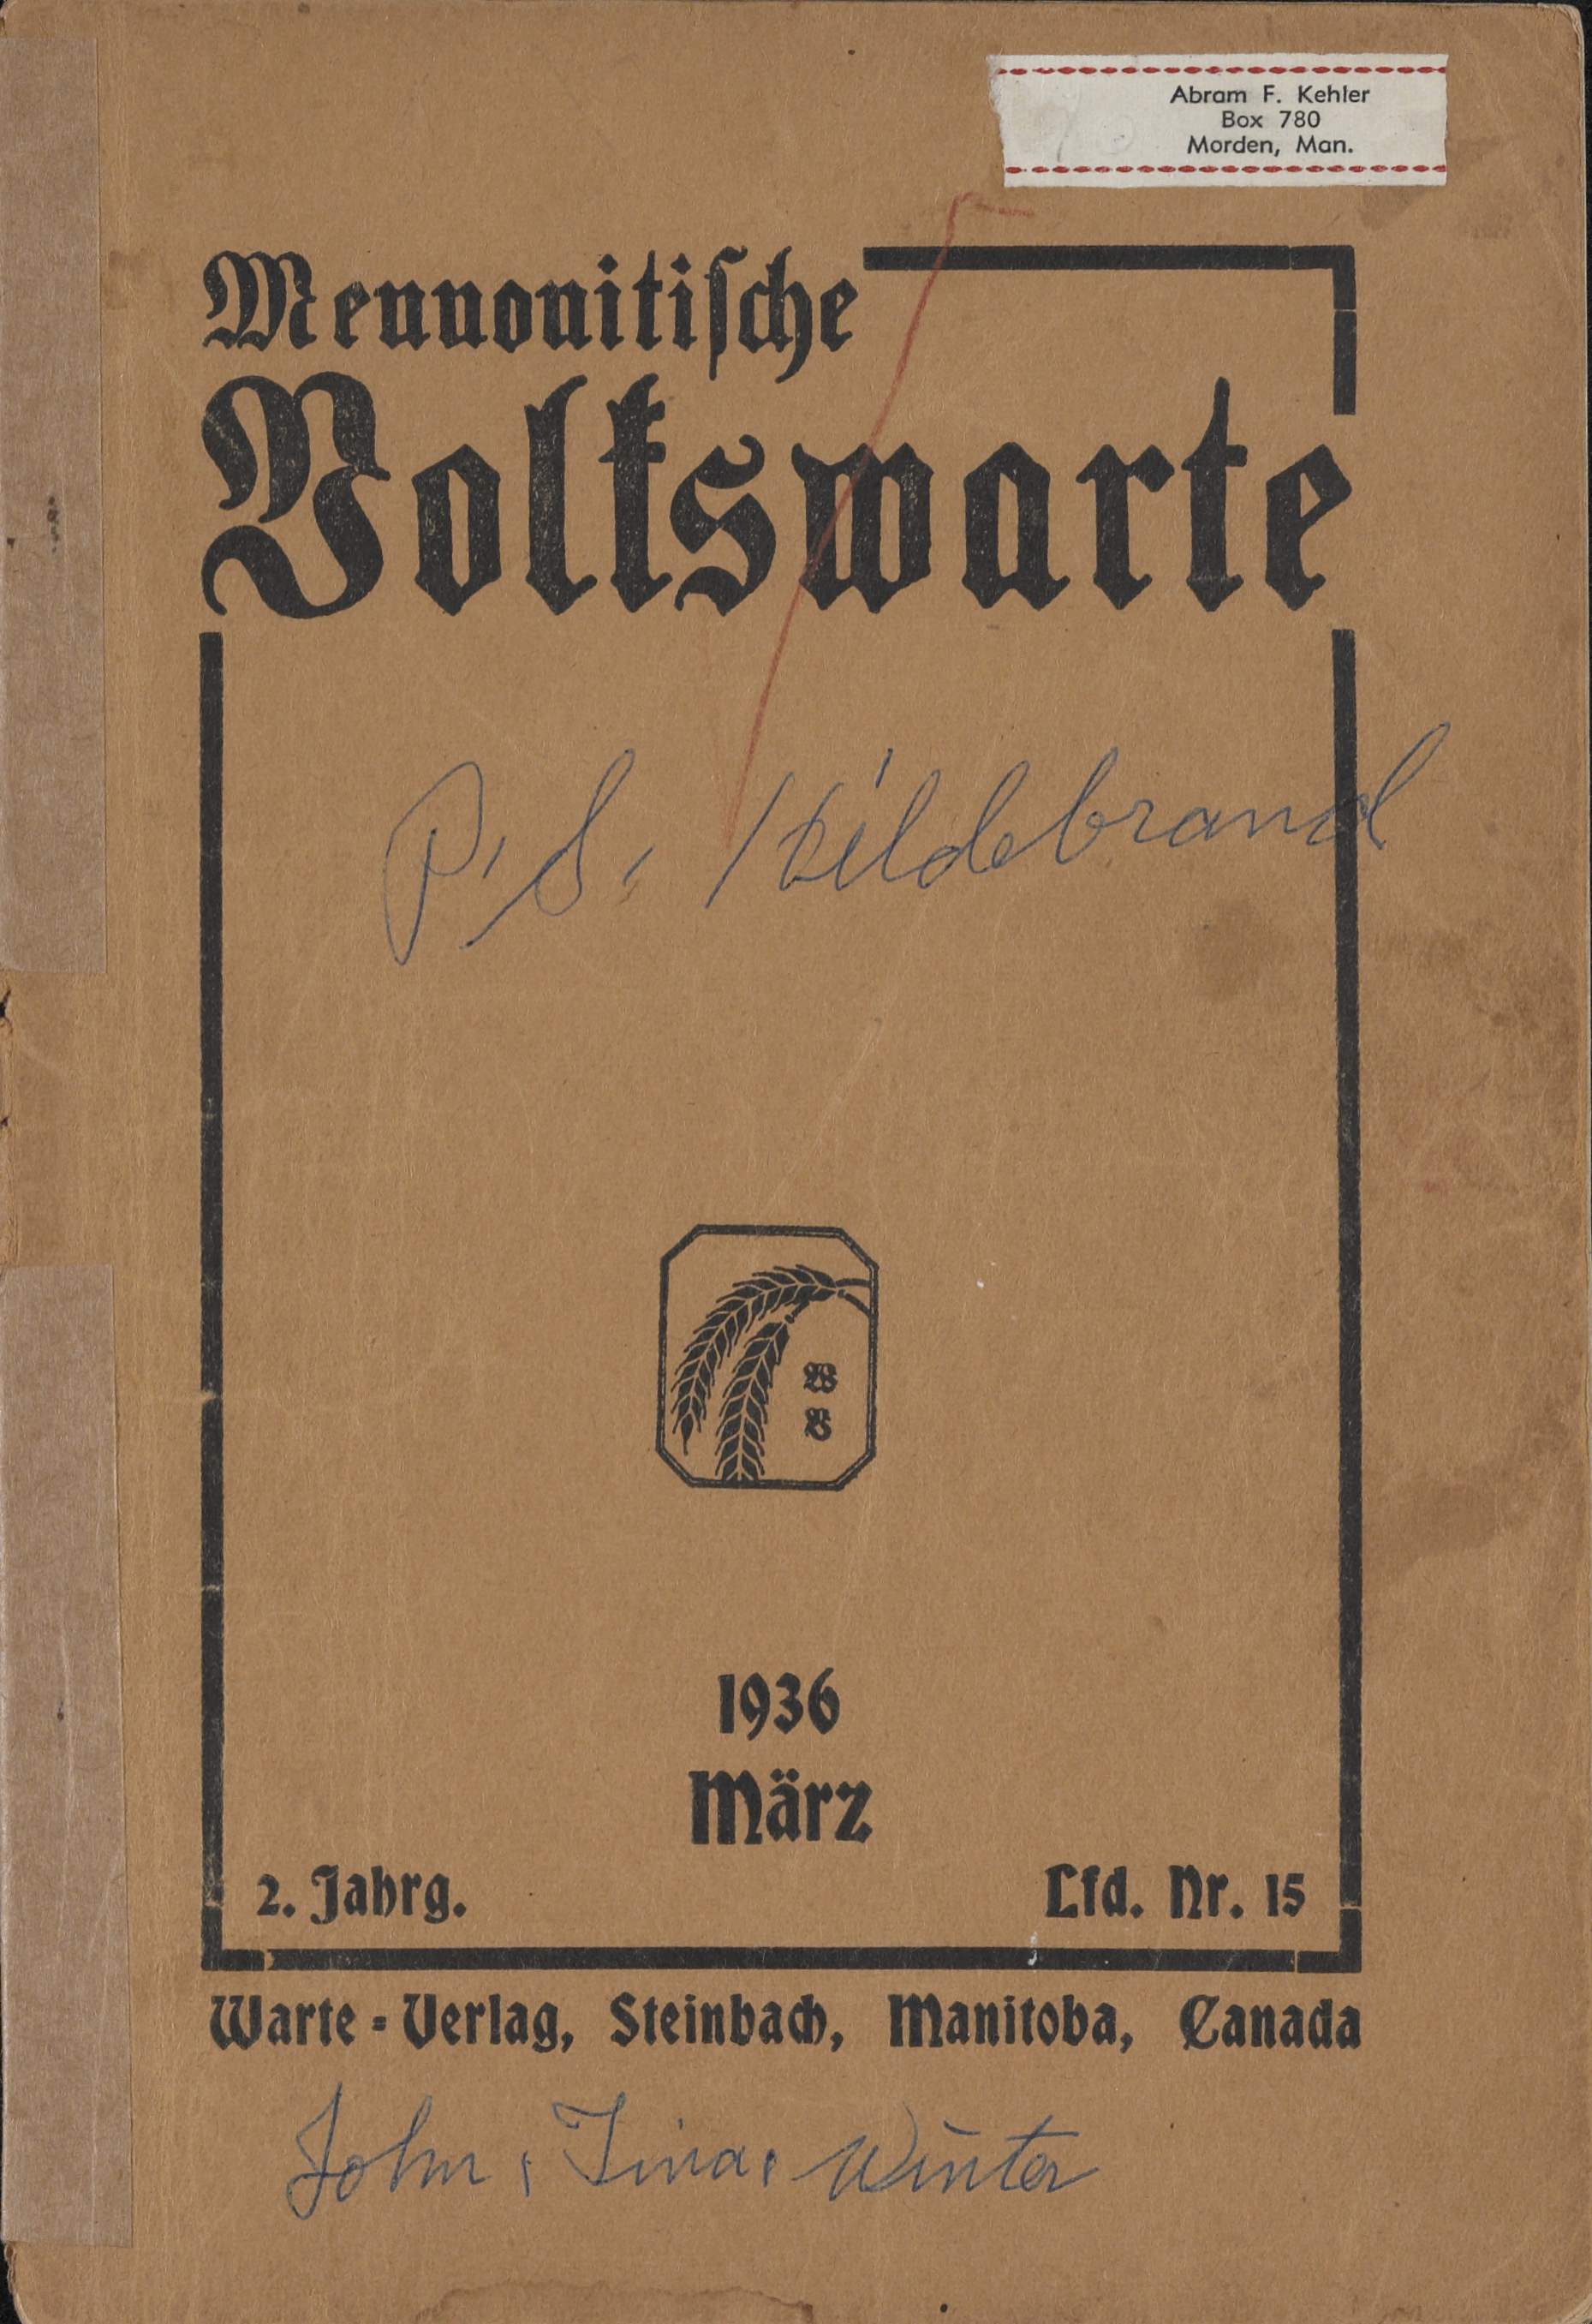 Abram F. Kehler
Box 780
Morden, Man.
Mennonitische
Volkswarte
P. S. Hildebrand
W
V
1936
März
2. Jahrg.
Lfd. Nr. 15
Warte-Verlag, Steinbach, Manitoba, Canada
John, Tina, Winter